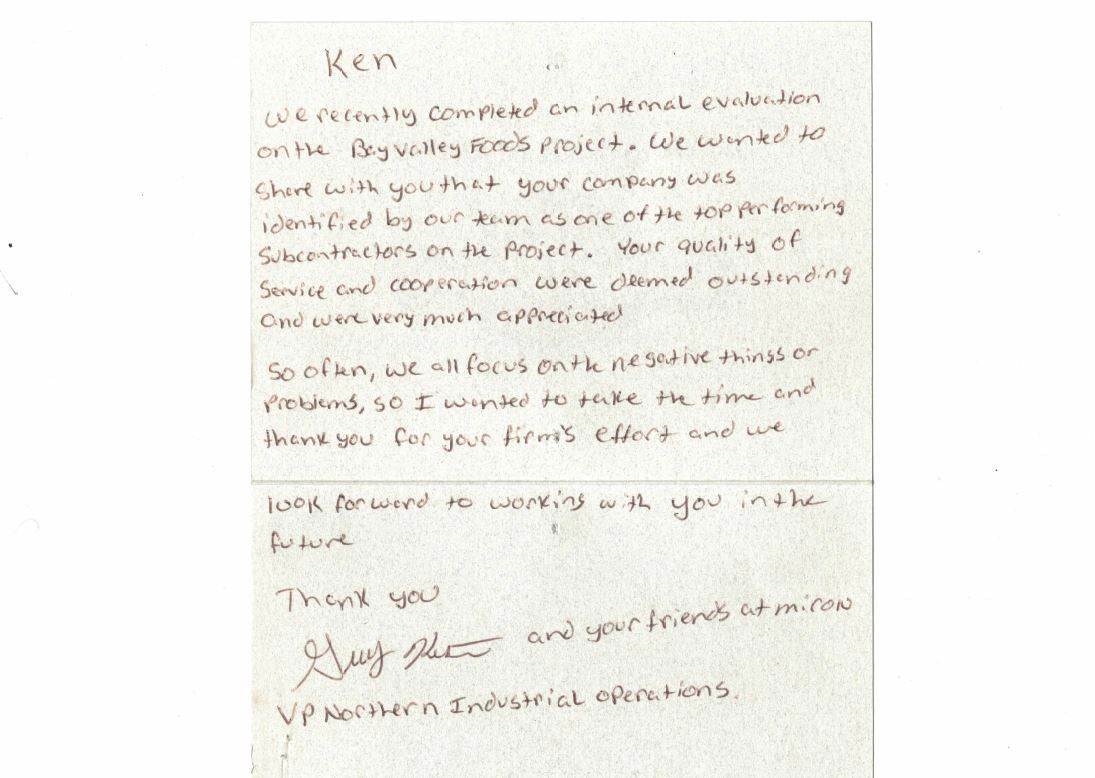 Ken
we recently completed an internal evaluation
on the Bay valley Foods project. We wanted to
share with you that your company was
identified by our team as one of the top performing
Subcontractors on the project. Your quality of
service and cooperation were deemed outstanding
and were very much appreciated
So often, we all focus on the negative things or
problems, so I wanted to take the time and
thank you for your firm's effort and we
look forward to working with you in the
future
Thank you
Guy and your friends at miron
VP Northern Industrial operations.